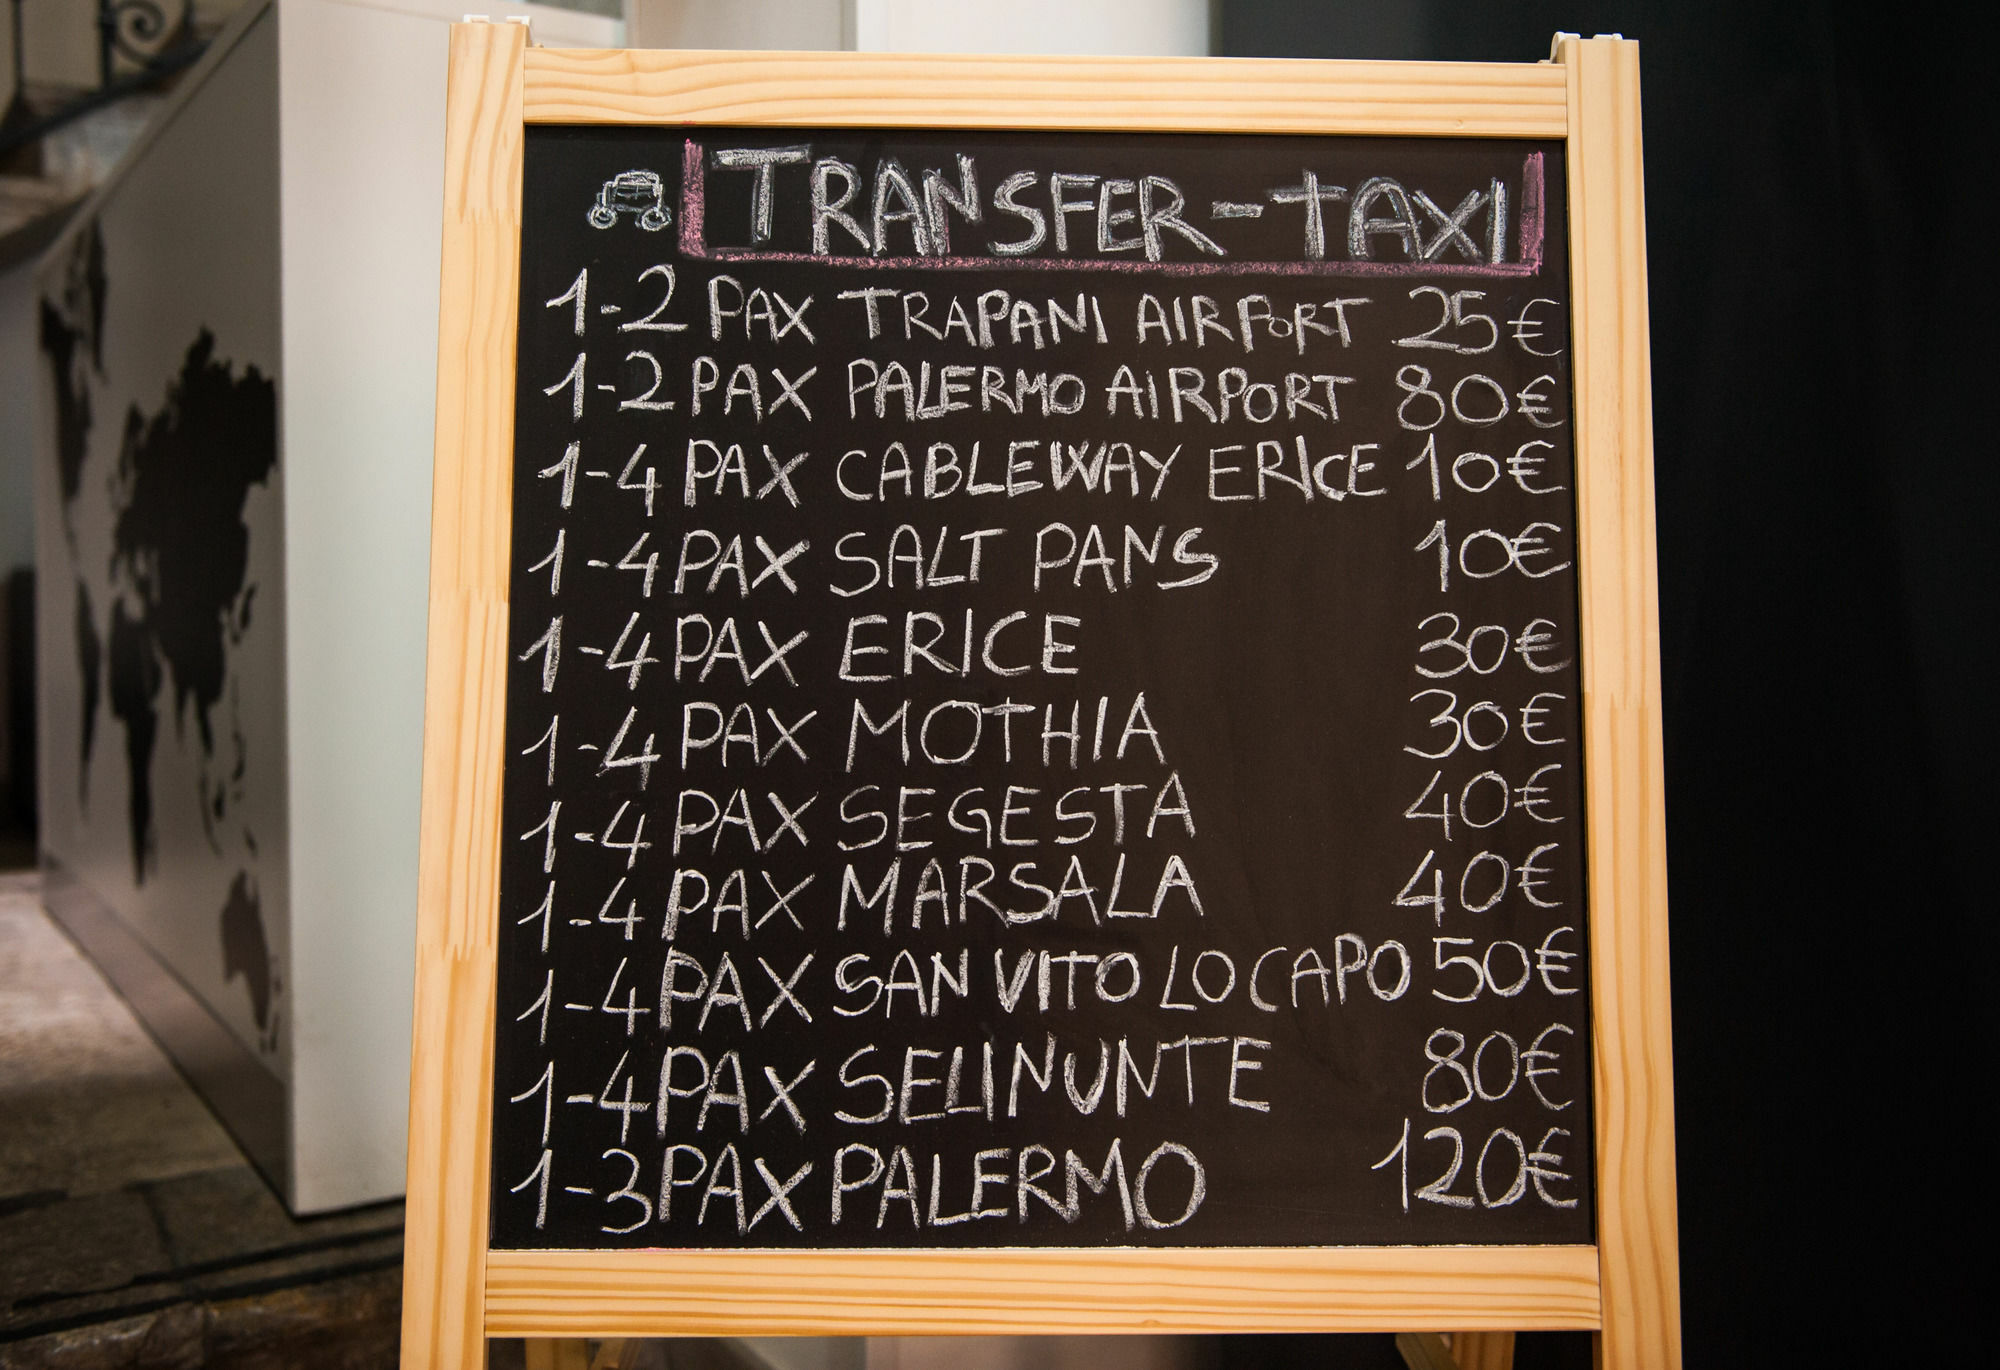 TRANSFER-TAXI
1-2 PAX TRAPANI AIRPORT 25€
1-2 PAX PALERMO AIRPORT 80€
1-4 PAX CABLEWAY ERICE 10€
1-4 PAX SALT PANS 10€
1-4 PAX ERICE 30€
1-4 PAX MOTHIA 30€
1-4 PAX SEGESTA 40€
1-4 PAX MARSALA 40€
1-4 PAX SAN VITO LO CAPO 50€
1-4 PAX SELINUNTE 80€
1-3 PAX PALERMO 120€